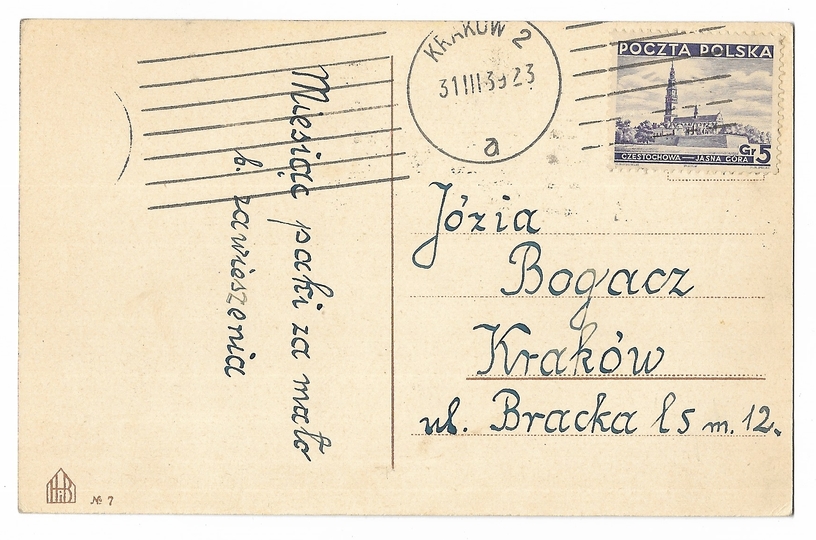 Miesiąc paki za mało
b. zawieszenia
KRAKÓW 2
31 III 39 23
a
POCZTA POLSKA
CZĘSTOCHOWA — JASNA GÓRA
Gr 5
Józia
Bogacz
Kraków
ul. Bracka l 5 m. 12.
№ 7